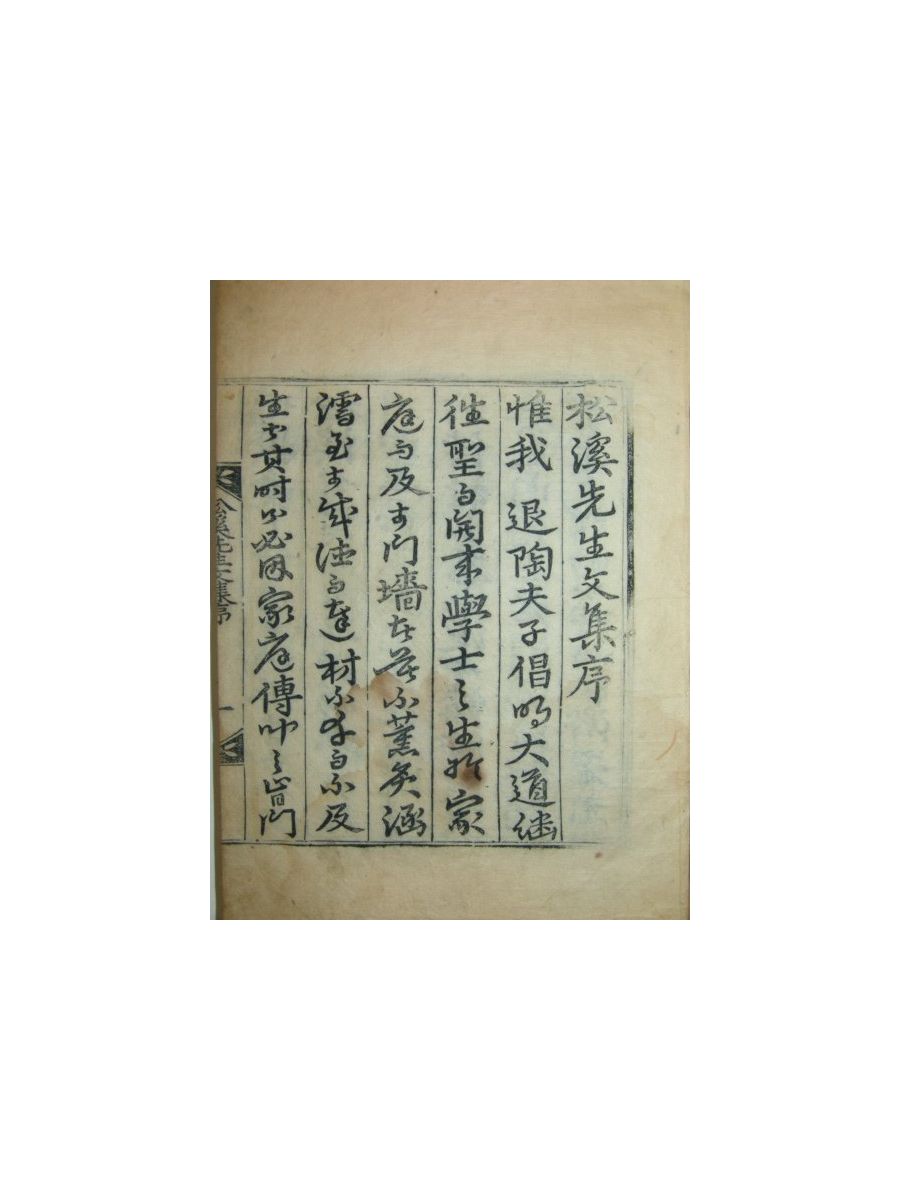 松溪先生文集序
惟我 退陶夫子倡明大道繼
往聖而開來學士之生於家
庭而及于門墻者莫不薰炙涵
濡至于成德而達材不幸而不及
生于其時必因家庭傳 之 門
松溪先生文集序 一